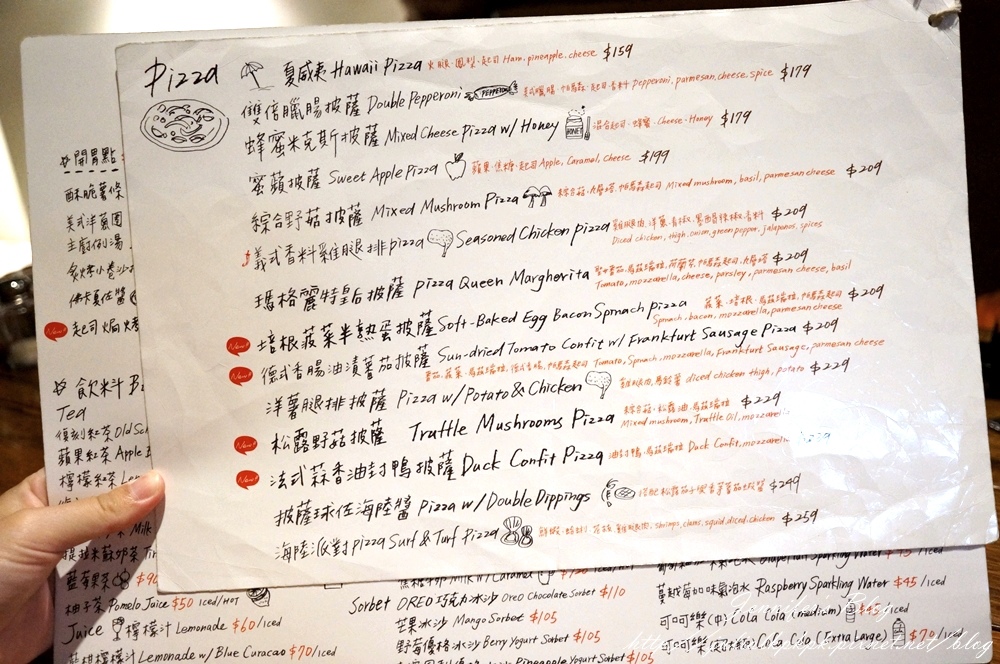 Pizza
夏威夷 Hawaii Pizza 火腿、鳳梨、起司 Ham, pineapple, cheese $159
雙倍臘腸披薩 Double Pepperoni PEPPERONI 美式臘腸、帕瑪森、起司香料 Pepperoni, parmesan, cheese, spice $179
蜂蜜米克斯披薩 Mixed Cheese Pizza w/ Honey HONEY 混合起司、蜂蜜、Cheese, Honey $179
蜜蘋披薩 Sweet Apple Pizza 蘋果、焦糖、起司 Apple, Caramel, Cheese $199
綜合野菇披薩 Mixed Mushroom Pizza 綜合菇、九層塔、帕瑪森起司 Mixed mushroom, basil, parmesan cheese $209
義式香料雞腿排 pizza Seasoned Chicken pizza 雞腿肉、洋蔥、青椒、墨西哥辣椒、香料 $209
Diced chicken, thigh, onion, green pepper, jalapenos, spices
瑪格麗特皇后披薩 pizza Queen Margherita $209
Tomato, mozzarella, cheese, parsley, parmesan cheese, basil
New! 培根菠菜半熟蛋披薩 Soft-Baked Egg Bacon Spinach pizza 菠菜、培根、馬茲瑞拉、帕瑪森起司 $209
Spinach, bacon, mozzarella, parmesan cheese
New! 德式香腸油漬蕃茄披薩 Sun-dried Tomato Confit w/ Frankfurt Sausage Pizza $209
蕃茄、菠菜、馬茲瑞拉、德式香腸、帕瑪森起司 Tomato, Spinach, mozzarella, Frankfurt Sausage, parmesan cheese
洋薯腿排披薩 Pizza w/ Potato & Chicken 雞腿肉、馬鈴薯 diced chicken thigh, potato $229
New! 松露野菇披薩 Truffle Mushrooms Pizza 綜合菇、松露油、馬茲瑞拉 $229
Mixed mushroom, Truffle Oil, mozzarella
New! 法式蒜香油封鴨披薩 Duck Confit Pizza 油封鴨、馬茲瑞拉 Duck Confit, mozzarella
披薩球佐海陸醬 Pizza w/ Double Dippings $249
海陸派對 pizza Surf & Turf Pizza shrimps, clams, squid, diced, chicken $259
開胃點
酥脆薯條
美式洋蔥圈
主廚例湯
炙烤小卷沙
佛卡夏佐醬
New! 起司焗烤
飲料 B
Tea
復刻紅茶 Old Sc
蘋果紅茶 Apple
檸檬紅茶 Lem
Milk
提拉米蘇奶茶 Tir
藍莓果茶 $90
柚子茶 Pomelo Juice $50 iced/Hot
Juice 檸檬汁 Lemonade $60/iced
Lemonade w/ Blue Curacao $70/iced
Milk w/ Caramel
Sorbet OREO 巧克力冰沙 Oreo Chocolate Sorbet $110
芒果冰沙 Mango Sorbet $105
野莓優格冰沙 Berry Yogurt Sorbet $105
Pineapple Yogurt Sorbet $105
Sparkling Water $45/iced
蔓越莓加味氣泡水 Raspberry Sparkling Water $45/iced
可口可樂(中) Cola Cola (medium) $45
可口可樂 Cola Cola (Extra Large) $70/iced